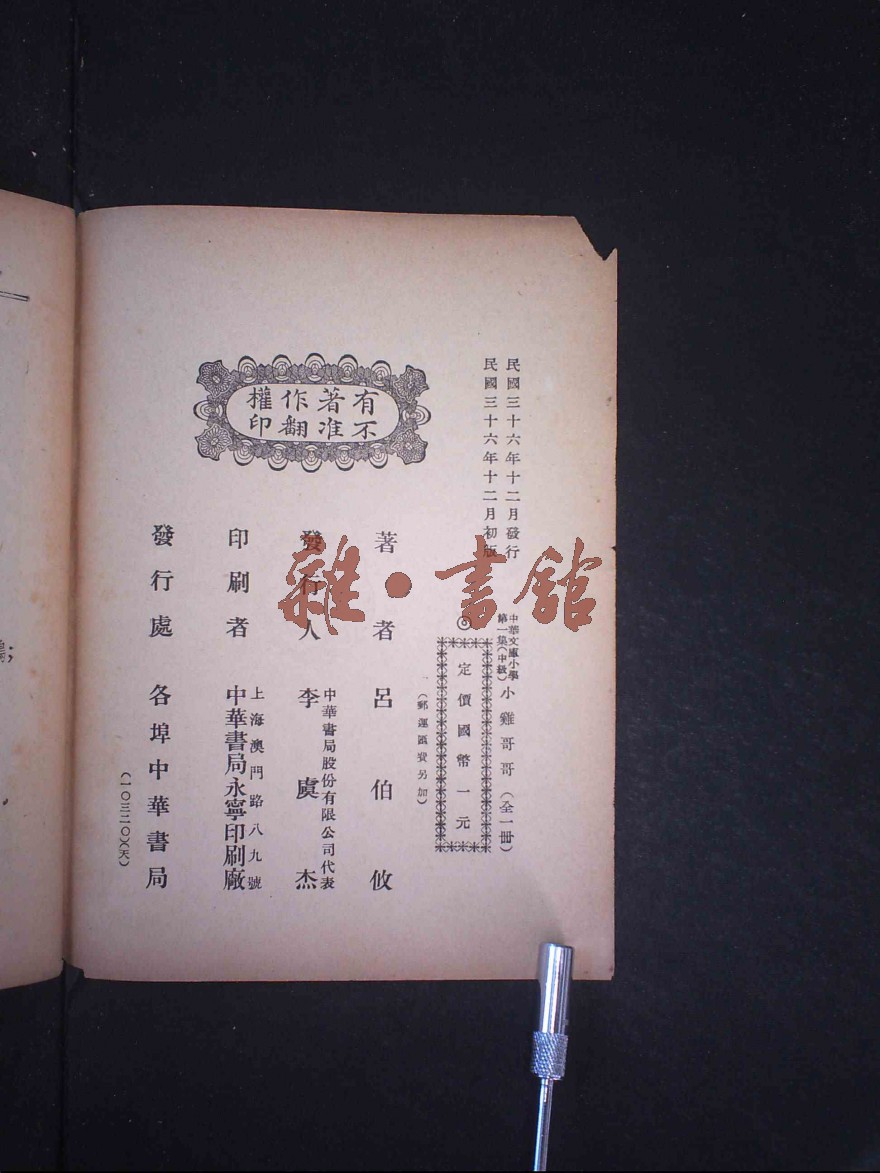 民國三十六年十二月發行
民國三十六年十二月初版
中華文庫小學
第一集(中級)
小雞哥哥(全一册)
◎
定價國幣一元
(郵運匯費另加)
有著作權
不准翻印
著者 呂伯攸
發行人 李虞杰
中華書局股份有限公司代表
印刷者 中華書局永寧印刷廠
上海澳門路八九號
發行處 各埠中華書局
(一〇三二〇)(天)
雜·書館